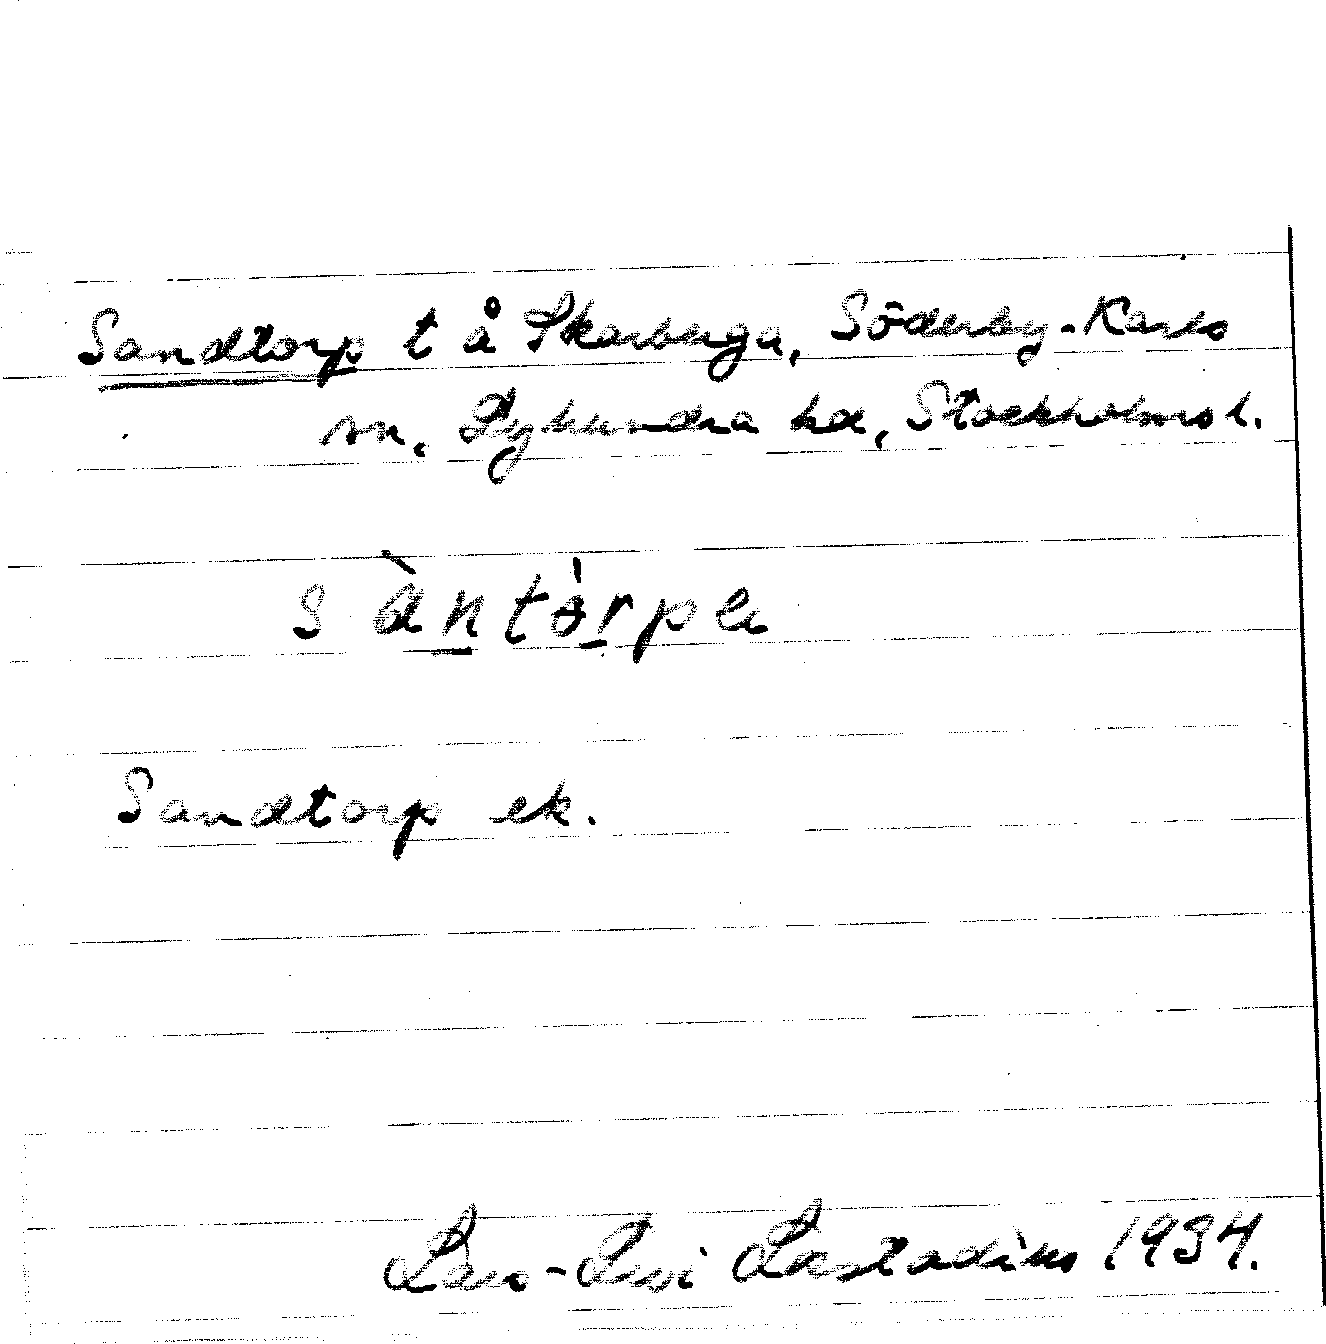 Sandtorp t å Skarberga, Söderby-Karls
sn, Lyhundra hd, Stockholms l.
sàntȯrpe
Sandtorp ek.
Lars-Levi Læstadius 1934.